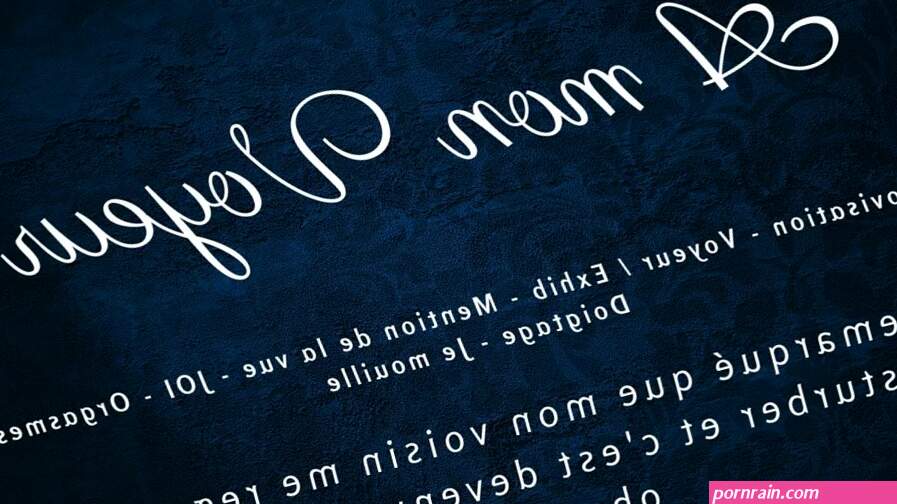 A mon Voyeur
ovisation - Voyeur / Exhib - Mention de la vue - JOI - Orgasmes
Doigtage - Je mouille
emarqué que mon voisin me reg
sturber et c'est deven
ob
pornrain.com